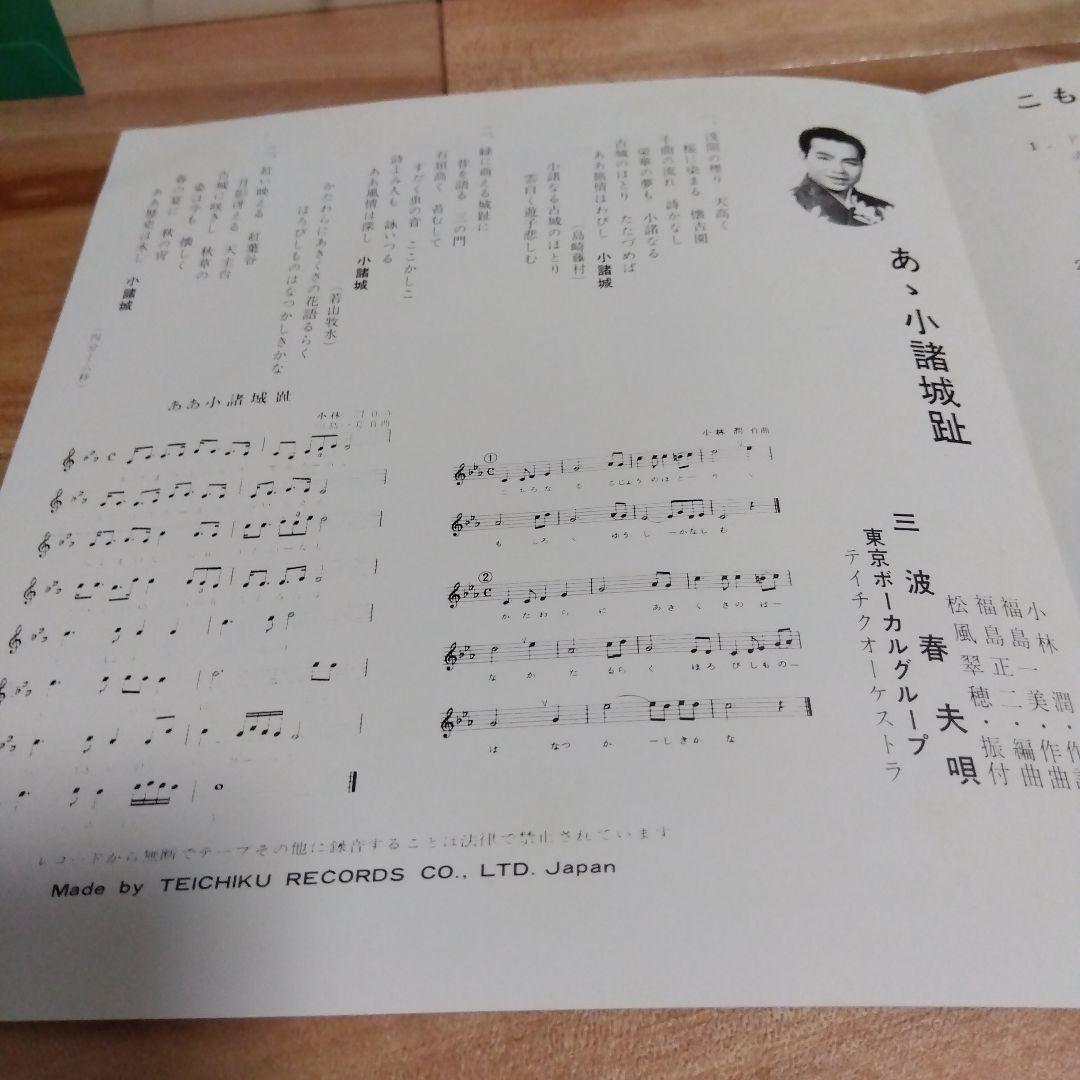 こも
1.
あゝ小諸城趾
小林潤・作
福島一美・作曲
福島正二・編曲
松風翠穂・振付
三波春夫唄
東京ボーカルグループ
テイチクオーケストラ
一、浅間の煙り 天高く
桜に染まる 懐古園
千曲の流れ 詩かなし
栄華の夢も 小諸なる
古城のほとり たたづめば
ああ旅情はわびし 小諸城
(島崎藤村)
小諸なる古城のほとり
雲白く遊子悲しむ
二、緑に萌える城趾に
昔を語る 三の門
石垣高く 苔むして
すだく虫の音 ここかしこ
詩よみ人も 詠いつる
ああ風情は深し 小諸城
(若山牧水)
かたわらにあきくさの花語るらく
ほろびしものはなつかしきかな
三、紅い映える 紅葉谷
月影冴える 天主台
古城に咲きし 秋草の
姿は今も 懐しく
春の宴に 秋の宵
ああ歴史は永し 小諸城
ああ小諸城趾
小林潤作曲
①
こもろなる こじょうのほとーり
もしろく ゆうしーかなしむ
②
かたわらに あきくさのはー
なかたるらく ほろびしものー
は なつかーしきかな
レコードから無断でテープその他に録音することは法律で禁止されています
Made by TEICHIKU RECORDS CO., LTD. Japan